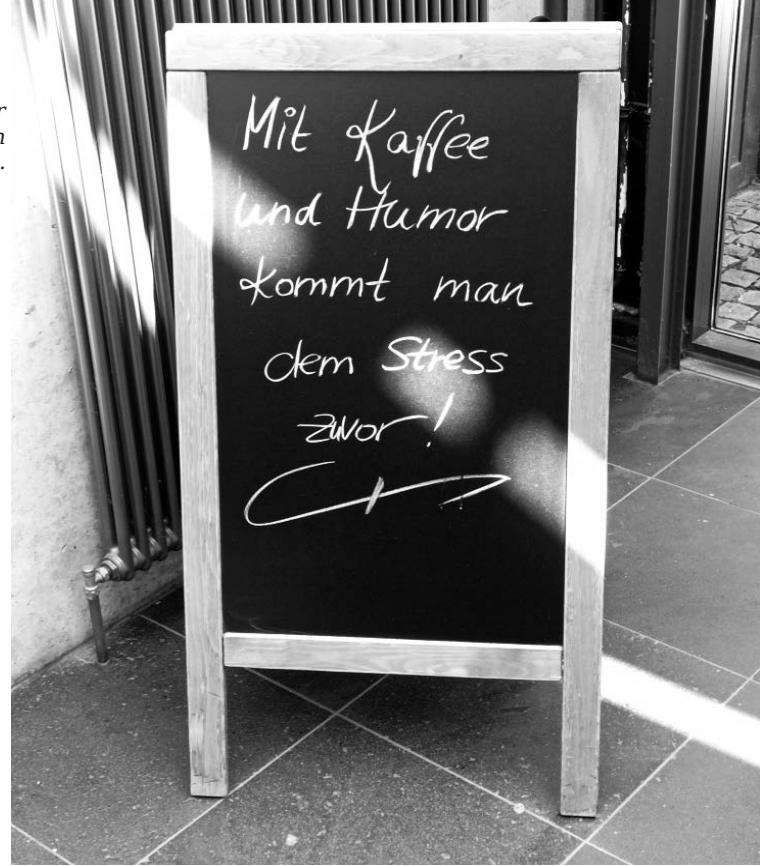 Mit Kaffee
und Humor
kommt man
dem Stress
zuvor!